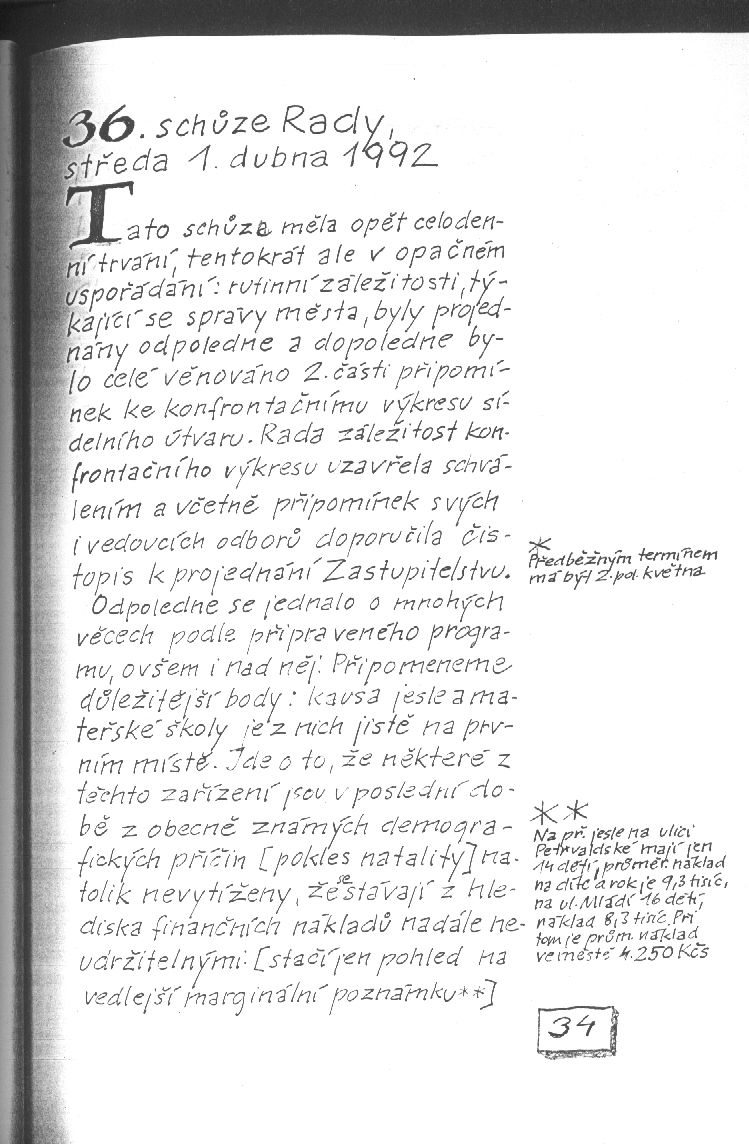 36. schůze Rady,
středa 1. dubna 1992
Tato schůze měla opět celoden-
ní trvání, tentokrát ale v opačném
uspořádání: rutinní záležitosti, tý-
kající se správy města, byly projed-
nány odpoledne a dopoledne by-
lo celé věnováno 2. části připomí-
nek ke konfrontačnímu výkresu sí-
delního útvaru. Rada záležitost kon-
frontačního výkresu uzavřela schvá-
lením a včetně připomínek svých
i vedoucích odborů doporučila čis-
topis k projednání Zastupitelstvu.
Odpoledne se jednalo o mnohých
věcech podle připraveného progra-
mu, ovšem i nad něj. Připomeneme
důležitější body: kausa jesle a ma-
teřské školy je z nich jistě na prv-
ním místě. Jde o to, že některé z
těchto zařízení jsou v poslední do-
bě z obecně známých demogra-
fických příčin [pokles natality] na-
tolik nevytíženy, že se stávají z hle-
diska finančních nákladů nadále ne-
udržitelnými. [stačí jen pohled na
vedlejší marginální poznámku**]
*
Předběžným termínem
má být 2. pol. května
**
Na př. jesle na ulici
Petřvaldské mají jen
14 dětí, průměr. náklad
na dítě a rok je 9,3 tisíc,
na ul. Mládí 16 dětí,
náklad 8,3 tisíc. Při
tom je prům. náklad
ve městě 4.250 Kčs
34